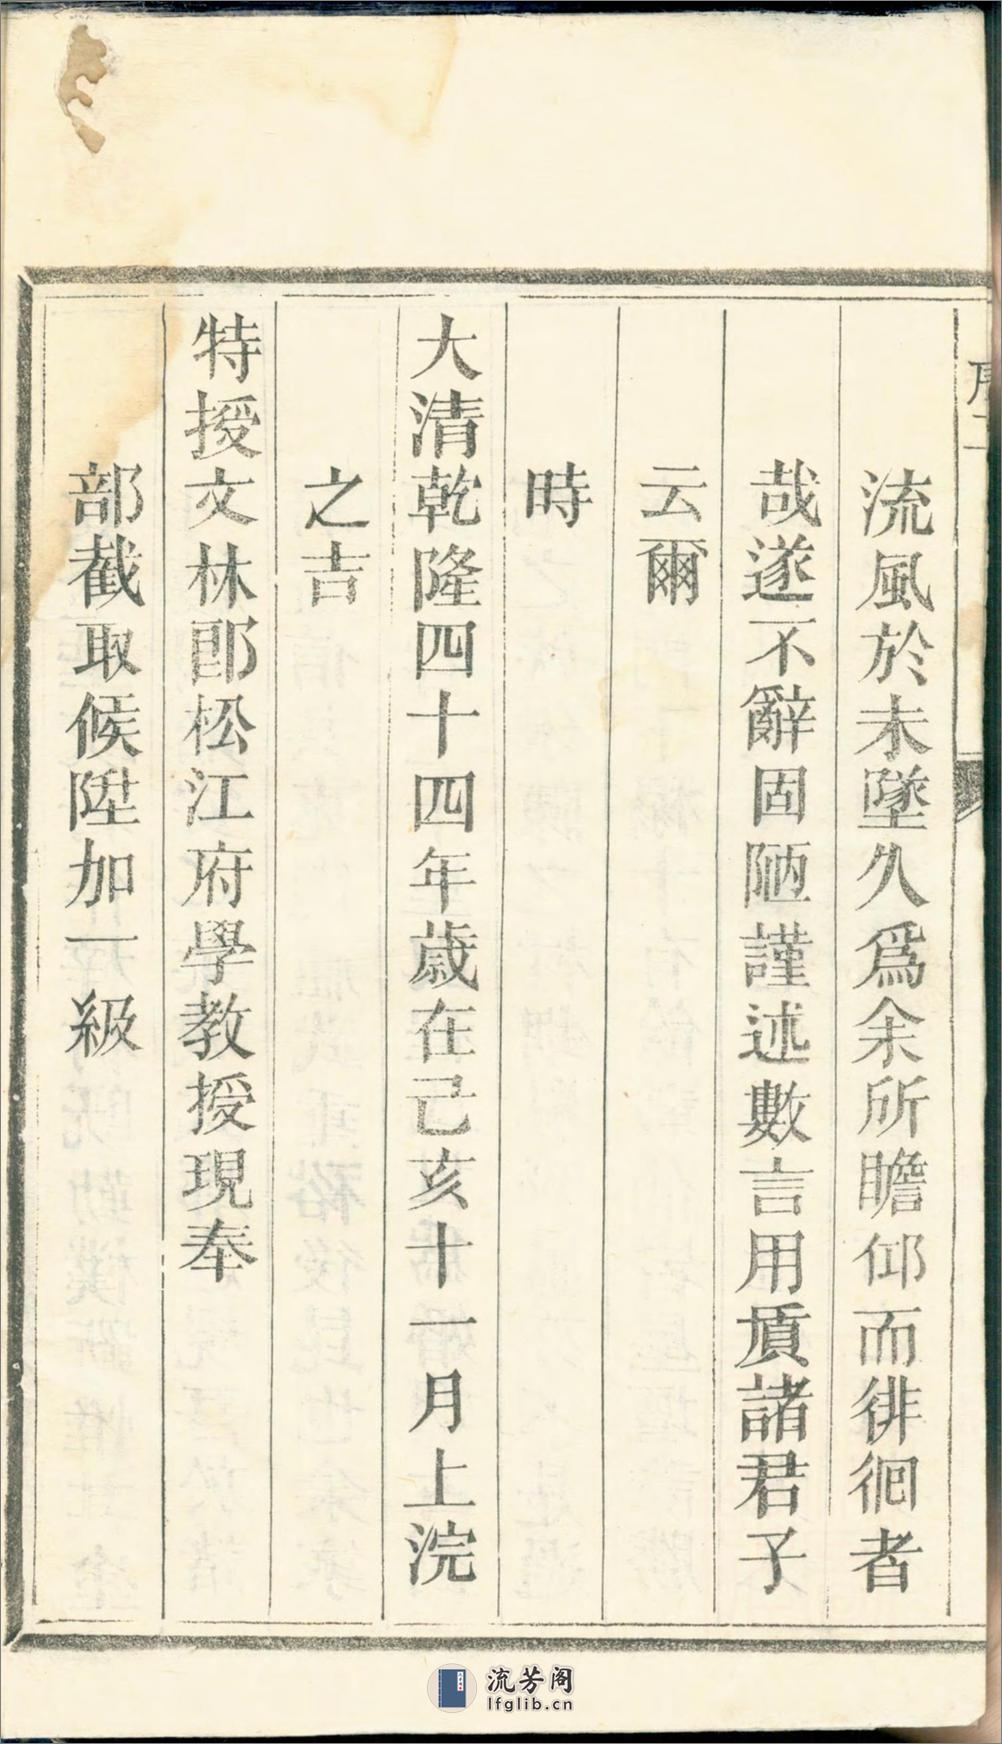 序二
流風於未墜久爲余所瞻仰而徘徊者
哉遂不辭固陋謹述數言用質諸君子
云爾
時
大清乾隆四十四年歲在己亥十一月上浣
之吉
特授文林郎松江府學教授現奉
部截取候陞加一級
流芳阁
lfglib.cn